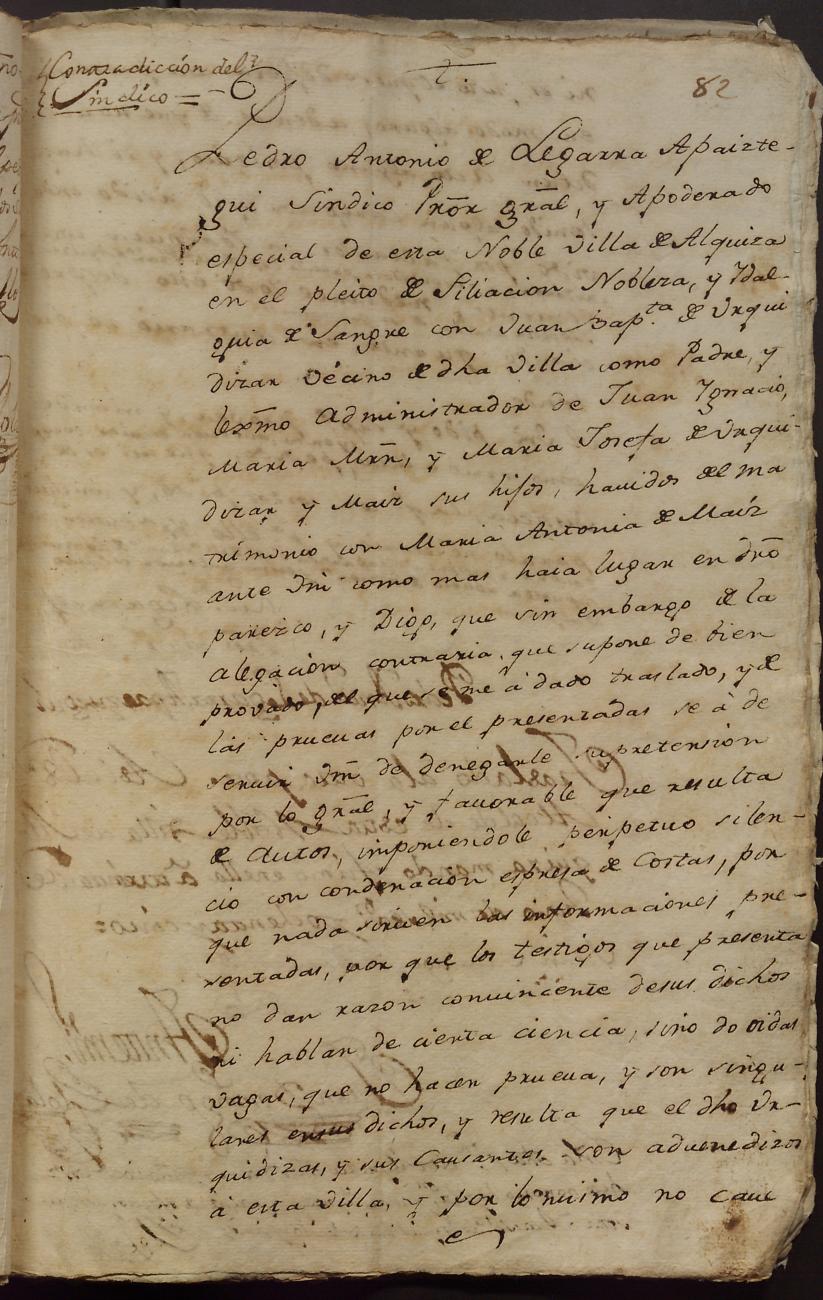 Contradicción del
Sindico =
t.
82
Pedro Antonio de Legarra Apaizte-
gui Sindico Pror gral, y Apoderado
especial de esta Noble Villa de Alquiza
en el pleito de Filiacion Nobleza, y Ydal-
guia de Sangre con Juan Bapta de Urqui
dizar vecino de dha Villa como Padre, y
lexmo Administrador de Juan Ygnacio,
Maria Mrn, y Maria Josefa de Urqui-
dizar y Maiz sus hijos, havidos del ma
trimonio con Maria Antonia de Maiz
ante Vm como mas haia lugar en dro
parezco, y Digo, que sin embargo de la
alegacion contraria, que supone de bien
provado, del que se me à dado traslado, y de
las pruevas por el presentadas se à de
servir Vm de denegarle su pretension
por lo gral, y favorable que resulta
de Autos, imponiendole perpetuo silen-
cio con condenacion espresa de Costas, por
que nada sirven las informaciones pre-
sentadas, por que los testigos que presenta
no dan razon convincente de sus dichos
ni hablan de cierta ciencia, sino de oidas
vagas, que no hacen prueva, y son singu-
lares en sus dichos, y resulta que el dho Ur-
quidizar, y sus Causantes son advenedizos
à esta Villa, y por lo mismo no cave